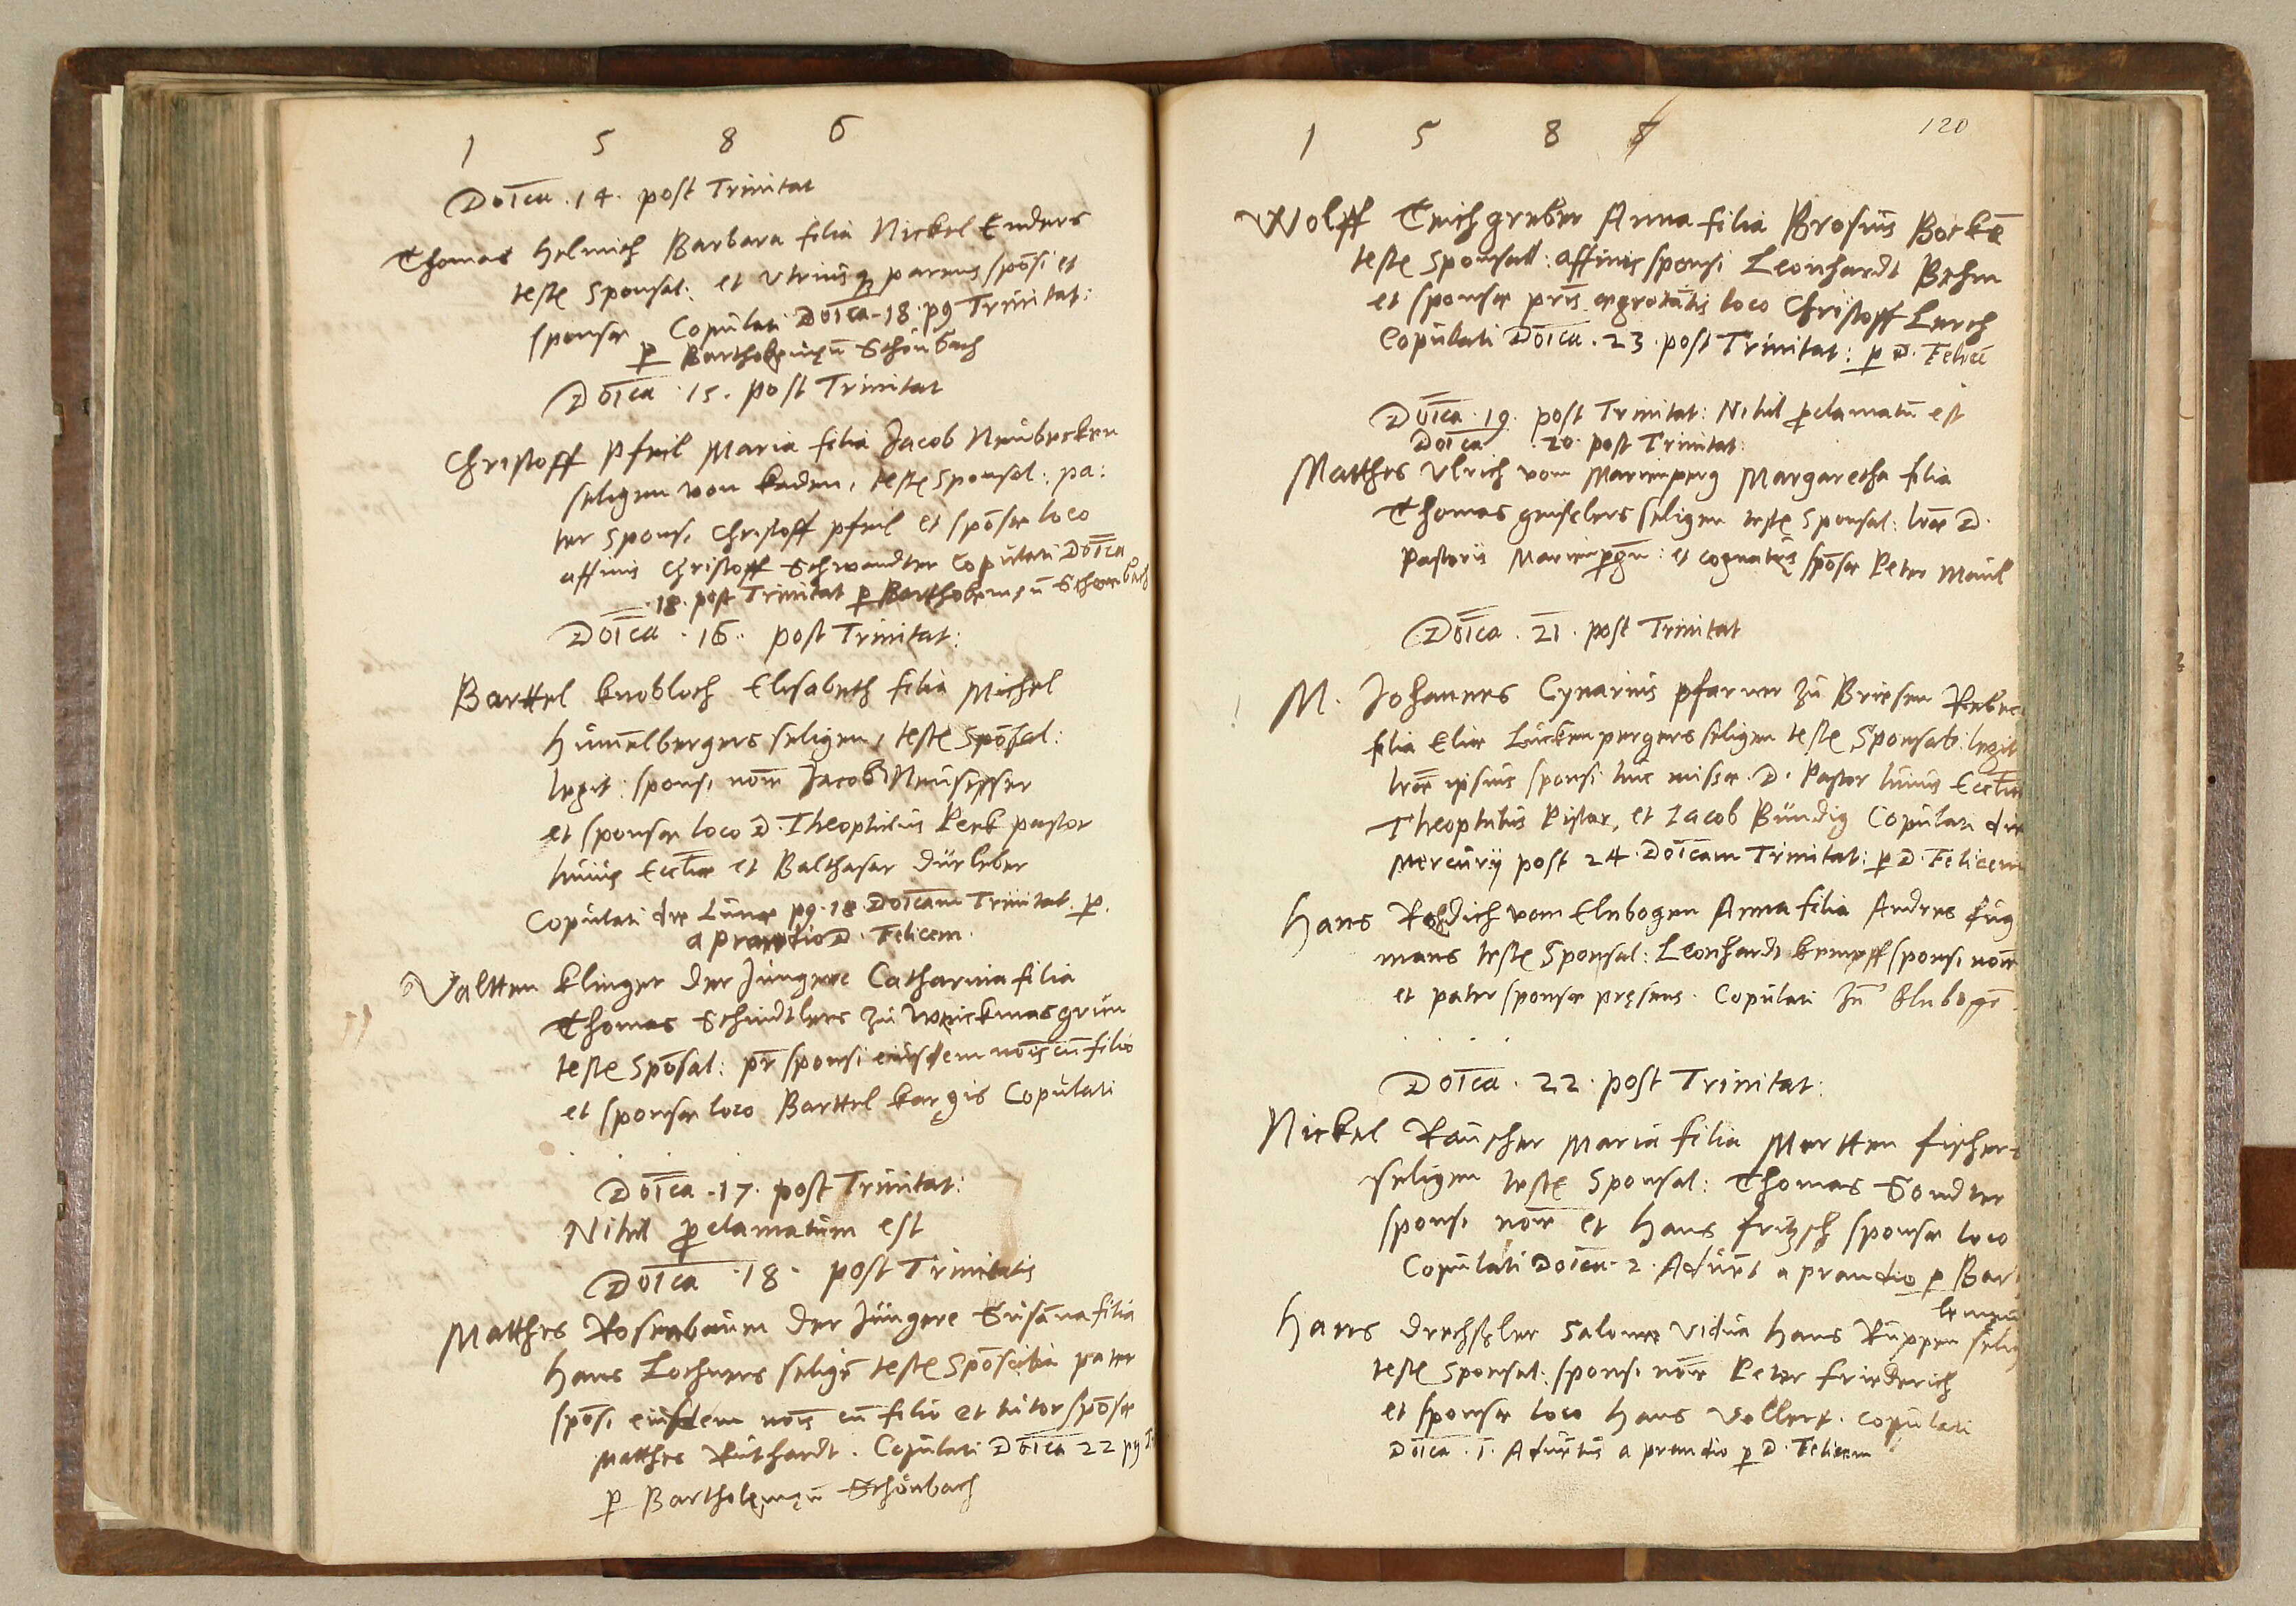 1 5 8 6
Doīca . 14 . post Trinitat
Thomas Helmich Barbara filia Nickel Enders
teste Sponsal: et utriusq parens spōsi et
sponsæ Copulati Doīca . 18 . p9 Trinitat:
p Bartholemęū Schönbach
Doīca . 15 . post Trinitat
Christoff Pfeil Maria filia Jacob Neubecken
seligen von Kaden, teste Sponsal: pa:
ter Sponsi Christoff Pfeil et spōsæ loco
affinis Christoff Schwandter Copulati Doīca
. 18 . post Trinitat p Bartholemęū Schoenbach
Doīca . 16 . post Trinitat:
Barttel Knobloch Elisabeth filia Michel
Hümelbergers seligen, teste Spōsal:
legit: sponsi noīe Jacob Neusesser
et sponsæ loco D. Theophilus Perk pastor
huius Eccliæ et Balthasar Dürleber
Copulati die Lunæ p9 . 18 . Doīcam Trinitat. p.
a prandio D. Felicem.
Valtten Klinger der Jungere Catharina filia
Thomas Schindtlers zu Weickmasgrün
teste Spōsal: pr sponsi eiusdem nōis cū filio
et sponsæ loco Barttel Kargis Copulati
. . .
Doīca . 17 . post Trinitat:
Nihil pclamatum est
Doīca . 18 . post Trinitatis
Matthes Rosenbaum der Jüngere Susāna filia
Hans Lochners seligē teste Spōsalia pater
spōsi eiusdem nōis cū filio et tutor spōsæ
Matthes Ruthardt . Copulati Doīca 22 p9 T
p Bartholemęū Schönbach
1 5 8 120
Wolff Teichgreber Anna filia Brosius Bockē
teste Sponsal: affinis sponsi Leonhardt Behm
et sponsæ pris ægrotātis loco Christoff Lerch
Copulati Doīca . 23 . post Trinitat: p D. Felicē
Doīca . 19 . post Trinitat: Nihil pclamatū est
Doīca . 20 . post Trinitat:
Matthes Ulrich vom Marienperg Margaretha filia
Thomas geiselers seligen teste Sponsal: lræ D.
Pastoris Marienpgēn: et cognatus spōsæ Peter Maul
Doīca . 21 . post Trinitat
M. Johannes Cynarius pfarrer zu Briesen Rebec
filia Eliæ Luckenpergers seligen teste Sponsal: legit
lræ ipsius sponsi huc missæ . D. Pastor huius Eccliæ
Theophilus Pistor, et Jacob Bündig Copulati die
Mercurij post 24 . Doīcam Trinitat: p D. Felicem
Hans Redich vom Elnbogen Anna filia Andres Zug
mans teste Sponsal: Leonhardt Kempff sponsi noīe
et pater sponsæ pręsens . Copulati Jm Elnbogē
. . .
Doīca . 22 . post Trinitat:
Nickel Rauscher Maria filia Mertten fischers
seligen teste Sponsal: Thomas Sondter
sponsi noīe et Hans Fritzsch sponsæ loco
Copulati Doīca . 2 . Advēt a prandio p Bar
lemęū
Hans Drechsler Salome vidua Hans Ruppen selig
teste Sponsal: sponsi noīe Peter Friederich
et sponsæ loco Hans Vollert . Copulati
Doīca . 1 . Advētus a prandio p D. Felicem